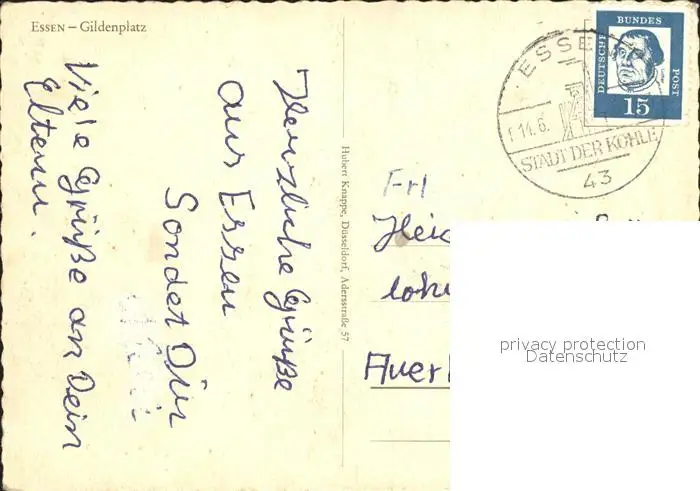 ESSEN – Gildenplatz
Herzliche Grüße
aus Essen
Sondet Dir
Viele Grüße an Dein
Eltern.
Hubert Knappe, Düsseldorf, Adersstraße 57
DEUTSCHE
BUNDES
POST
15
ESSE
14.6.
STADT DER KOHLE
43
Frl
Heid
Auer
privacy protection
Datenschutz